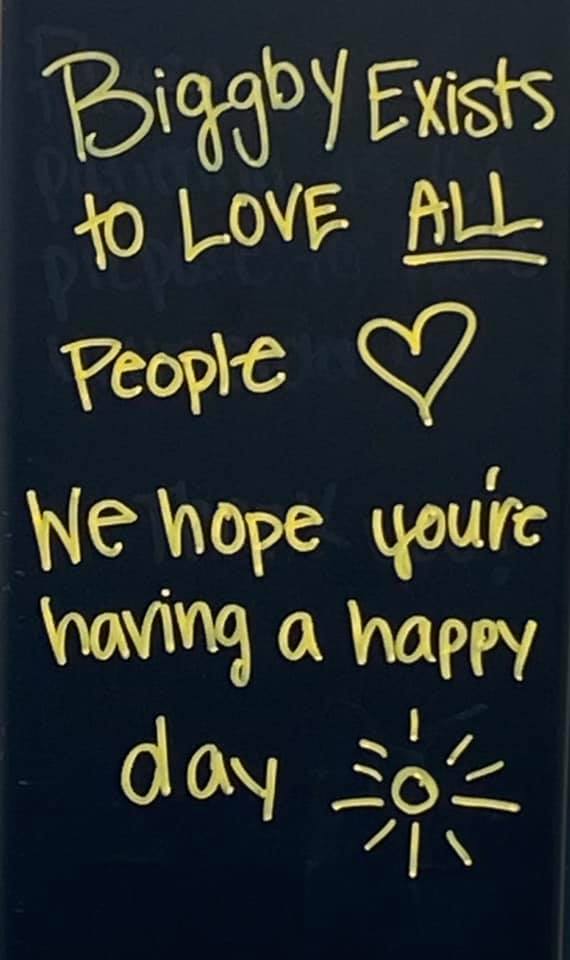 Biggby Exists
to LOVE ALL
People
We hope you're
having a happy
day